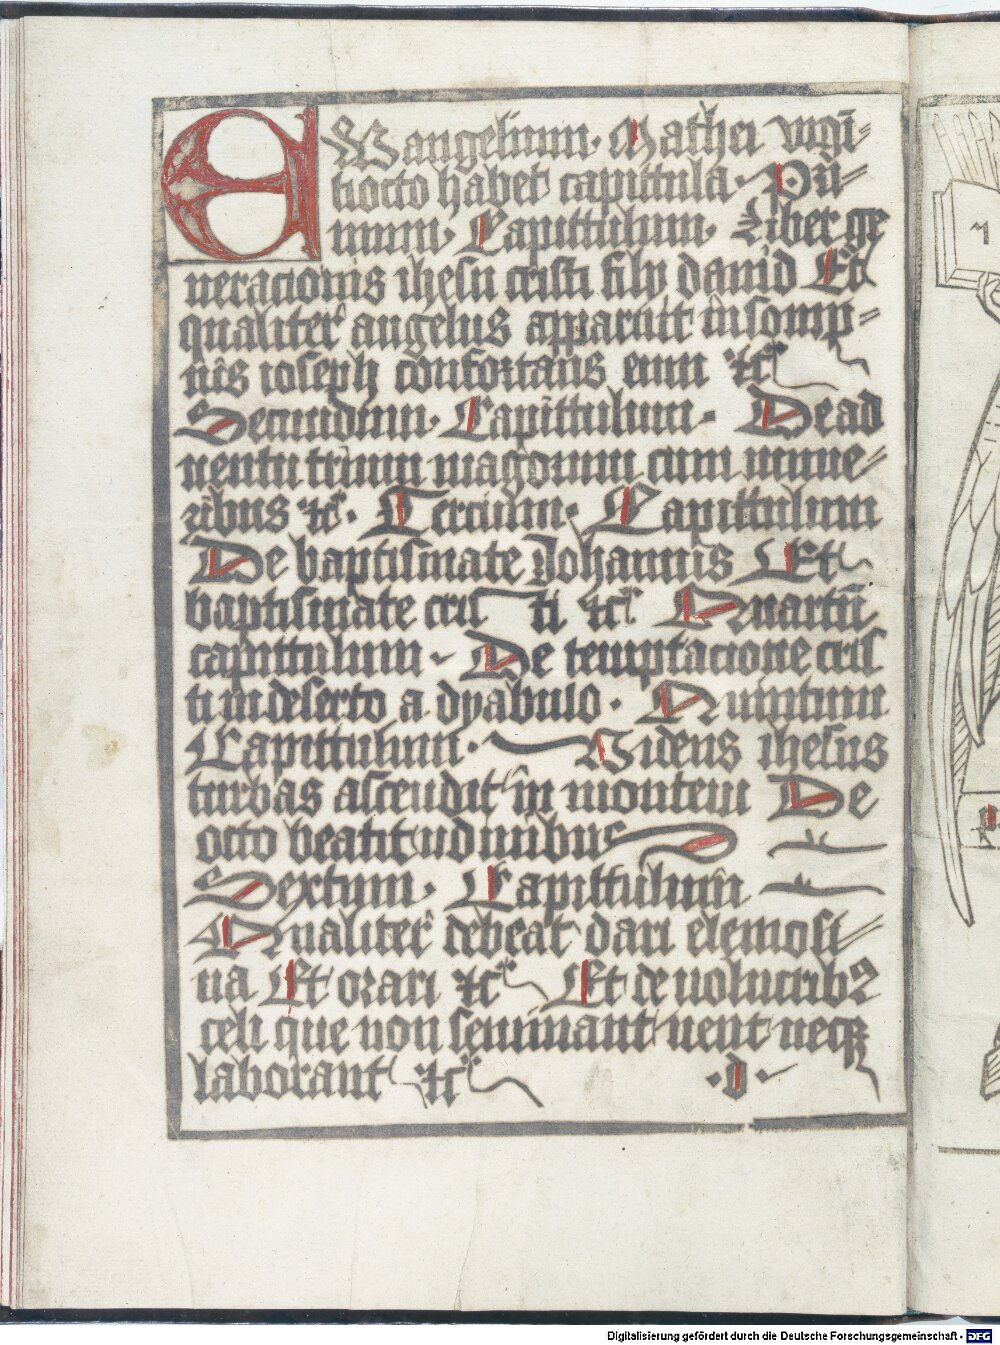 EWangelium· Mathei vigi⸗
tiocto habet capittula· Pri⸗
mum· Capittulum· Liber ge
neracionis ihesu cristi filij dauid Et
qualiter angelus apparuit in somp⸗
nis ioseph confortans eum ⁊c̃
Secundum· Capittulum· De ad
uentu trium magorum cum mune⸗
ribus ⁊c̃· Tercium· Capittulum
De baptismate Johannis Et
baptismate cristi ⁊c̃ Quartū
capittulum· De temptacione cris
ti in deserto a dyabulo· Quintum
Capittulum· Videns ihesus
turbas ascendit in montem De
octo beatitudinibus
Sextum· Capittulum
Qualiter debeat dari elemosi⸗
na Et orari ⁊c̃ Et de uolucribꝫ
celi que non seminant nent necꝫ
laborant ⁊c̃ ·d·
Digitalisierung gefördert durch die Deutsche Forschungsgemeinschaft - DFG